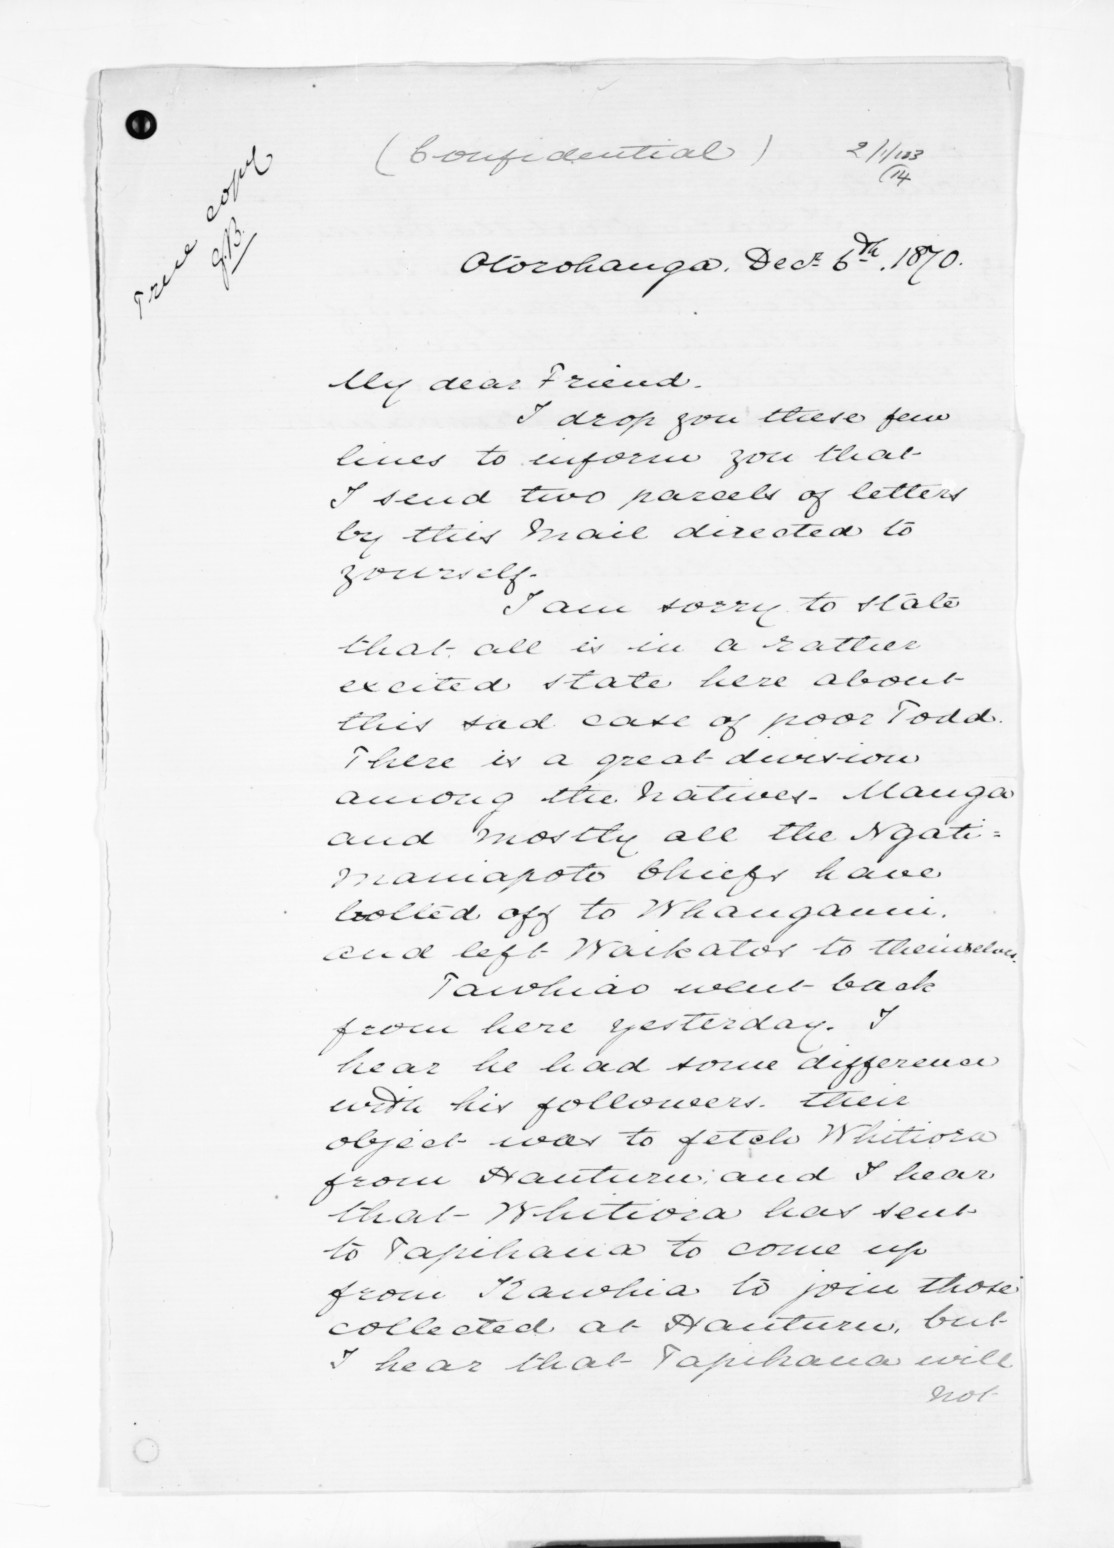 (Confidential)
2/1/123
/14
True copy
J.B.
Otorohanga. Decr. 6th. 1870.
My dear Friend.
I drop you these few
lines to inform you that
I send two parcels of letters
by this Mail directed to
yourself.
I am sorry to state
that all is in a rather
excited state here about
this sad case of poor Todd.
There is a great division
among the Natives. Manga
and mostly all the Ngati=
maniapoto Chiefs have
bolted off to Whanganui.
and left Waikatos to themselves.
Tawhiao went back
from here yesterday. I
hear he had some difference
with his followers. their
object was to fetch Whitiora
from Hauturu; and I hear
that Whitiora has sent
to Tapihana to come up
from Kawhia to join those
collected at Hauturu. but
I hear that Tapihana will
not